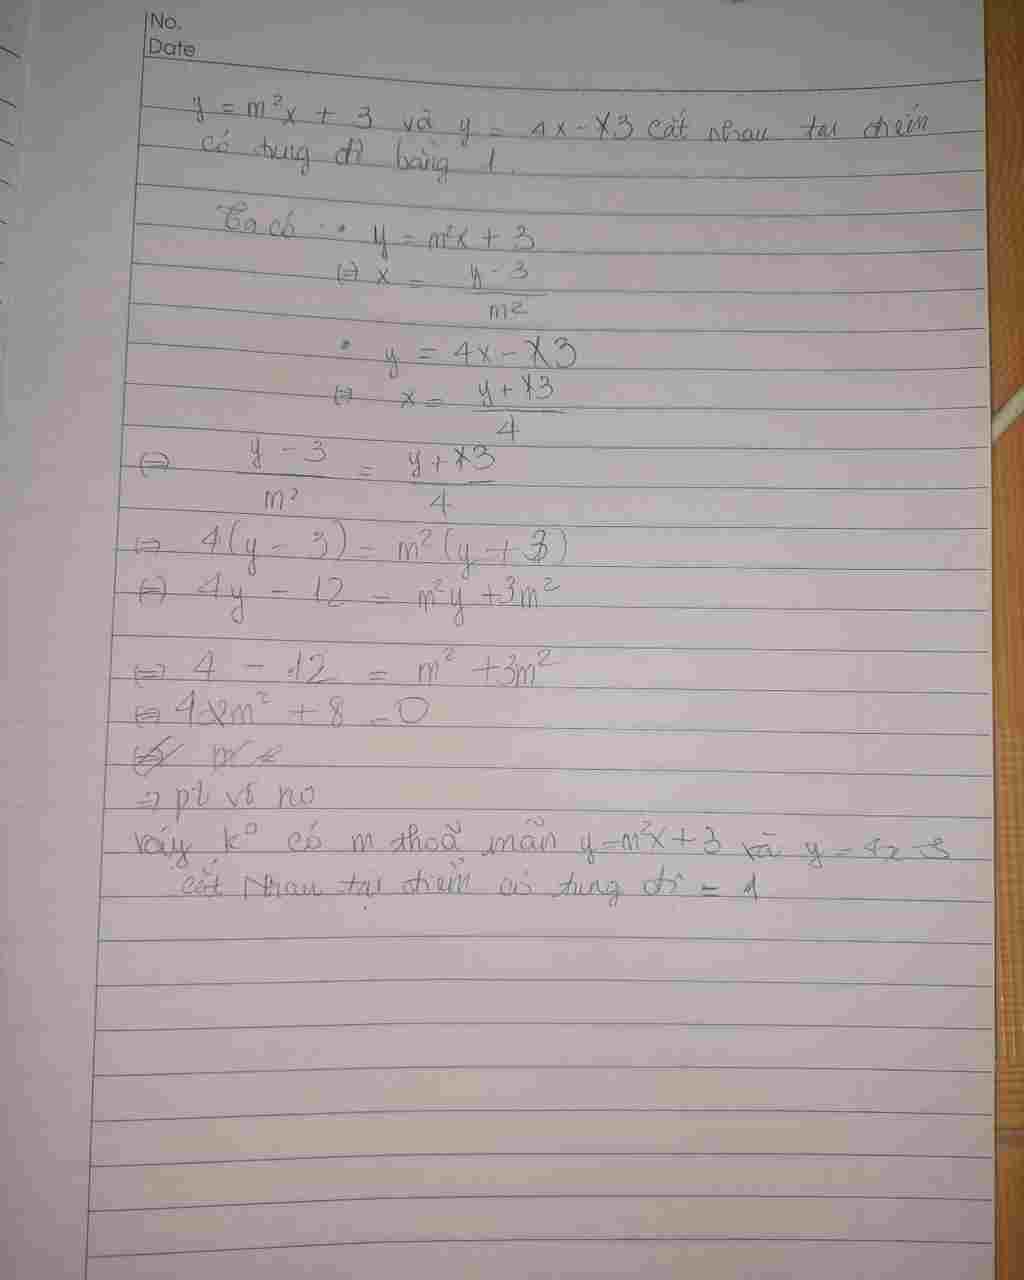 No.
Date
y = m²x + 3 và y = 4x - 3 cắt nhau tại điểm
có tung độ bằng 1.
Ta có : • y = m²x + 3
⇔ x = \frac{y - 3}{m²}
• y = 4x - 3
⇔ x = \frac{y + 3}{4}
⇔ \frac{y - 3}{m²} = \frac{y + 3}{4}
⇔ 4(y - 3) = m²(y + 3)
⇔ 4y - 12 = m²y + 3m²
⇔ 4 - 12 = m² + 3m²
⇔ 4m² + 8 = 0
⇒ pt vô no
vậy k° có m thoã mãn y = m²x + 3 và y = 4x - 3
cắt nhau tại điểm có tung độ = 1